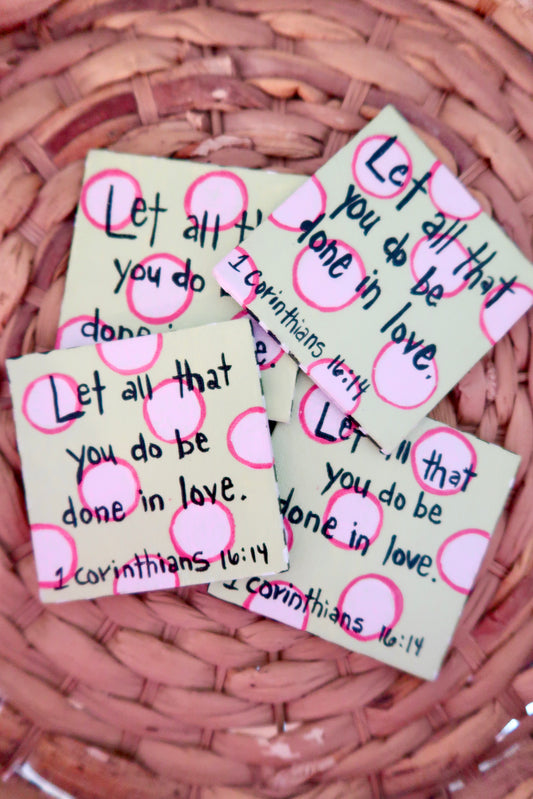 Let all
you do
done in
Let all that
you do be
done in love.
1 Corinthians 16:14
Let all that
you do be
done in love.
1 Corinthians 16:14
Let all that
you do be
done in love.
1 Corinthians 16:14